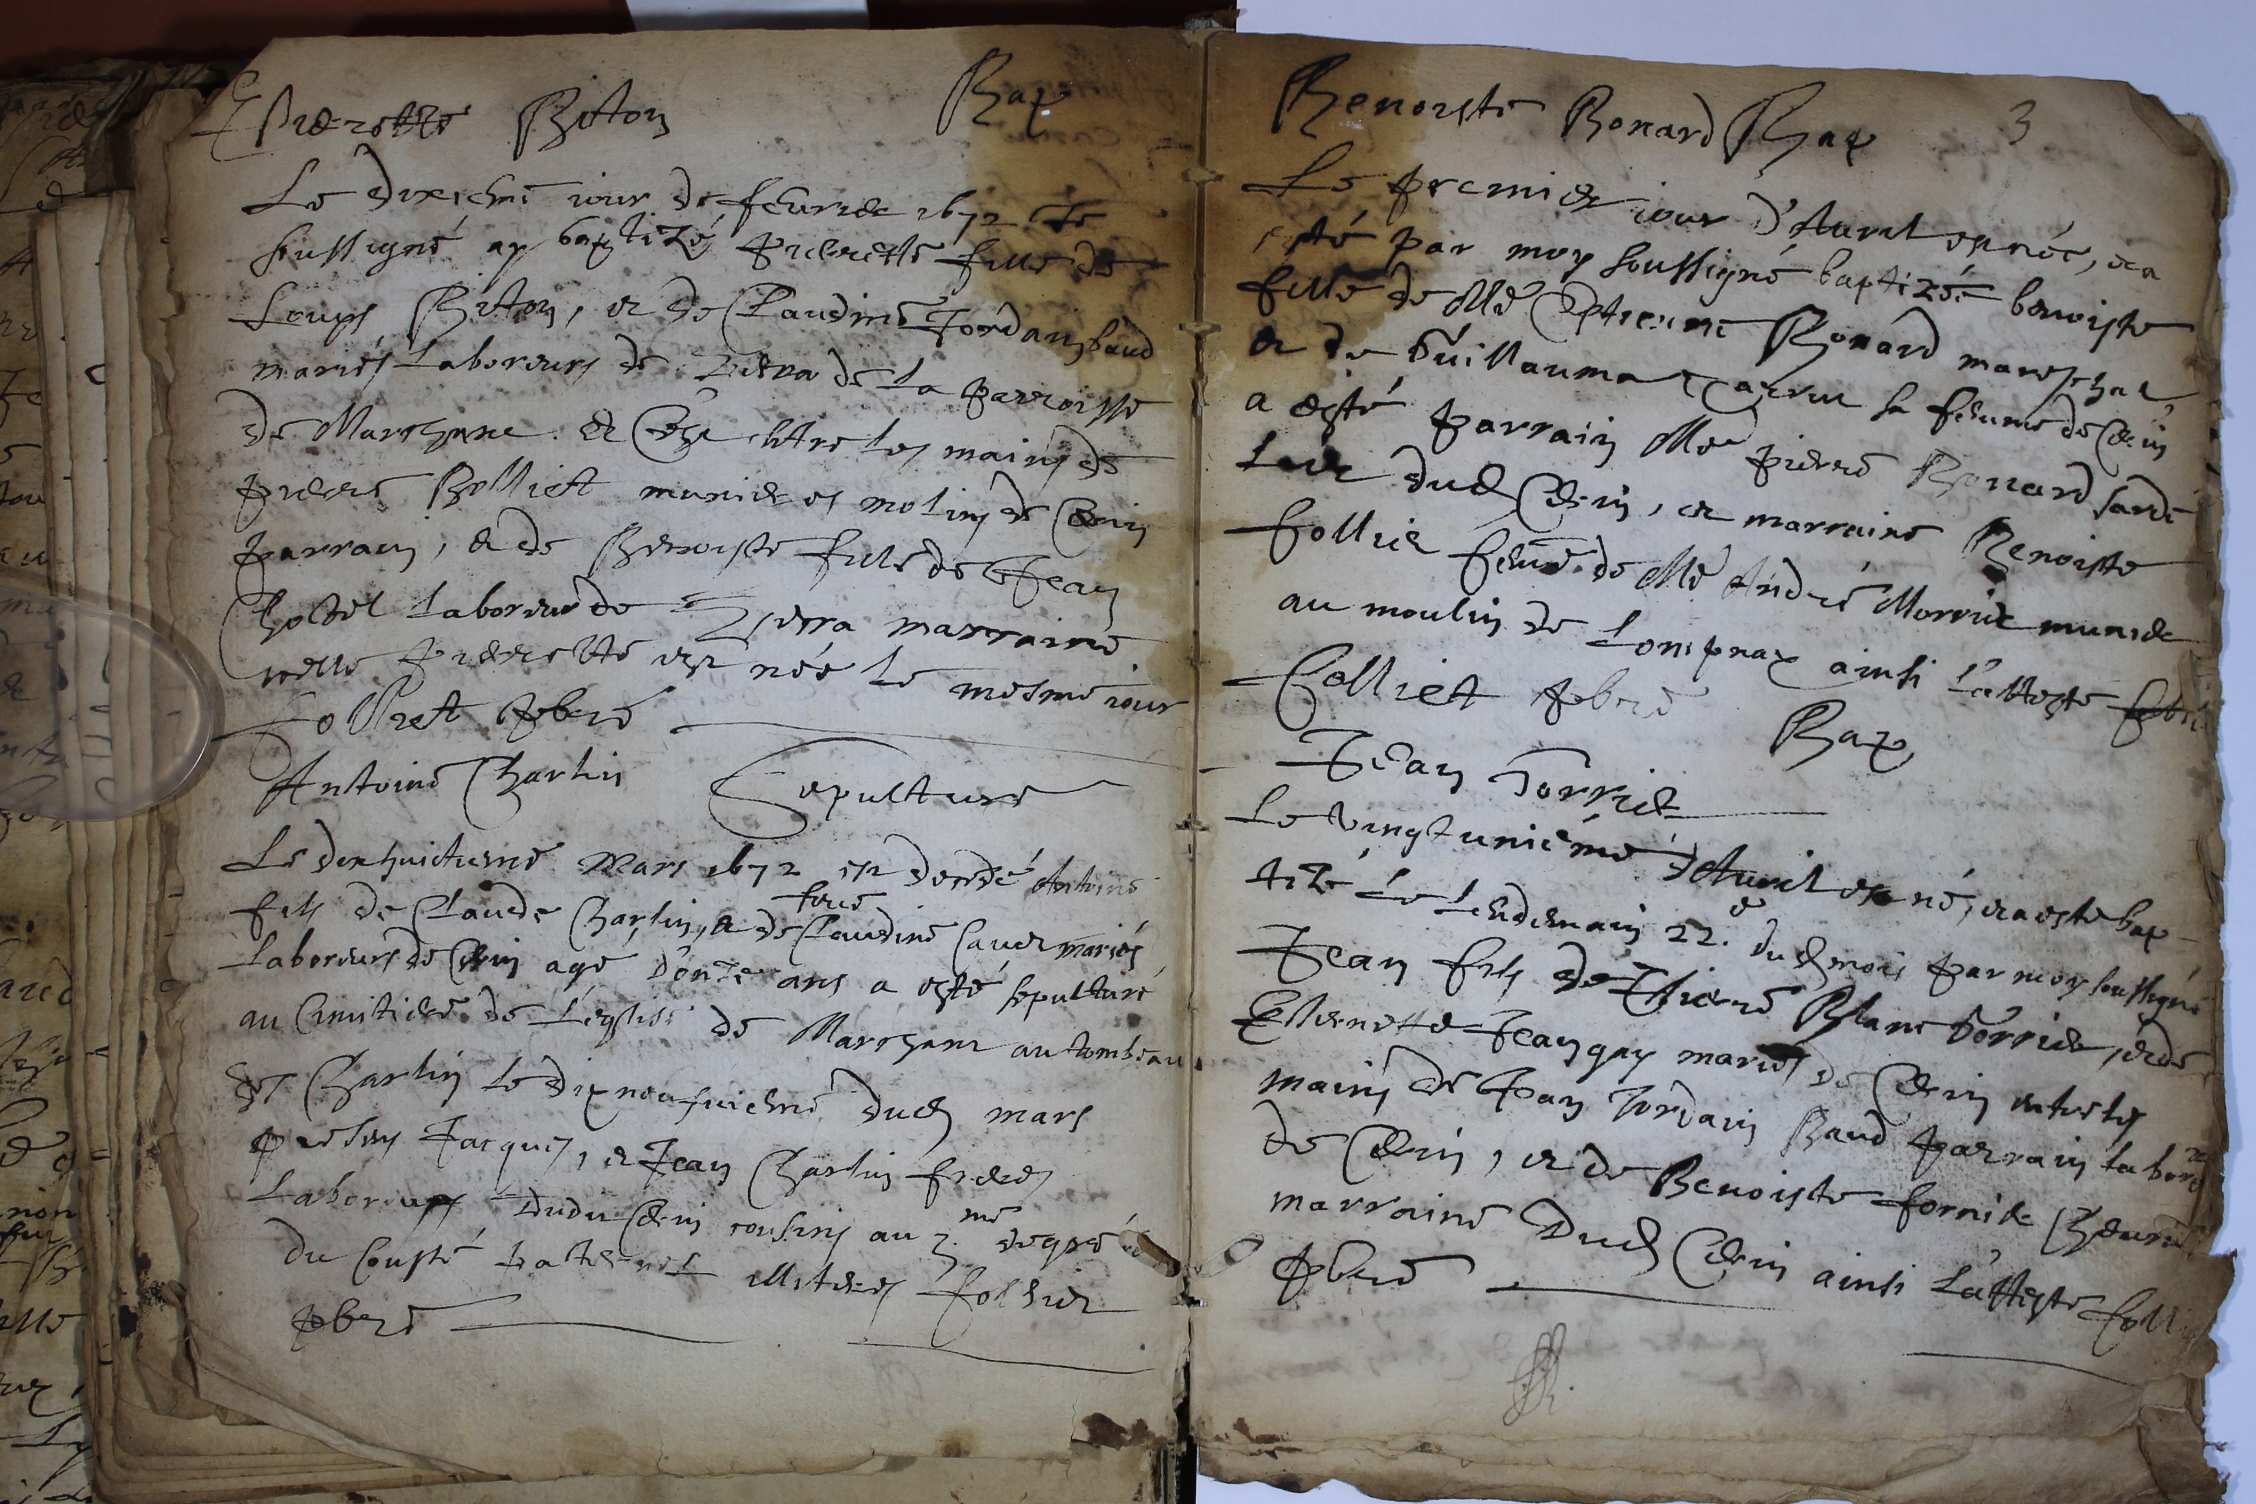 Pierrette Biton Bap
Le dixiesme iour de feburier 1672 Je
soussigné ay baptizé pierrette fille de
Louys Biton, et de Claudine Jordain baud
mariés Laboreurs de de La parroisse
de Marchanc. et Ce entre les mains de
pierre Bolliet munier es molins de Cerin
parrain, et de Benoiste fille de Jean
Choldel Laboreur de marraine
icelle pierrette est née le mesme iour
Folliet pbre
Antoine Charlin Sepulture
Le dixhuictiesme Mars 1672 est decedé Antoine
fils de Claude Charlin, et de feue Claudine Cauet mariés
Laboreurs de Cerin agé d'onze ans a esté sepulturé
au Cimitiere de L'eglise de Marchanc au tombeau
des Charlin le dixneufuiesme dud mars
presens Jacques, et Jean Charlin freres
Laboreurs dudit Cerin cousins au 3.me degré
du Cousté paternel illiterés Folliet
pbre
3
Benoiste Bonard Bap
Le premier iour d'Auril est née, et a
esté par moy soussigné baptizée benoiste
fille de Me Estienne Bonard mareschal
et de Guillauma sa femme de Cerin
a esté parrain Me pierre Bonard sarde
Lier dud Cerin, et marraine Benoiste
Follier femme de Me André Morrier munier
au moulin de Lompnax ainsi L'atteste
Folliet pbre
Jean Gorriet Bap
Le vingtuniéme d'Auril est né, et a esté bap-
tizé Le Lendemain 22.e dud mois par moy soussigné
Jean fils de Thierre Blanc Gorrier, et de
Estiennette Jeanguy mariés de Cerin entre les
mains de Jean Jordain Baud parrain labor.r
de Cerin, et de Benoiste fornier
marraine Dud Cerin ainsi L'atteste Folli
pbre